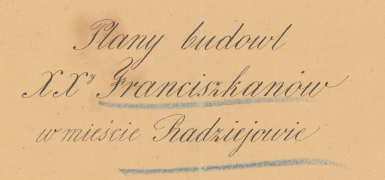 Plany budowl
XXy Franciszkanów
w mieście Radziejowie